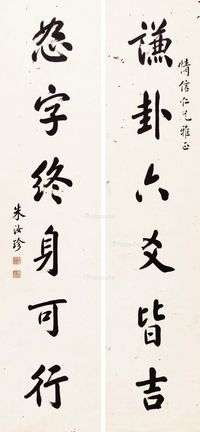 謙卦六爻皆吉
仁兄雅正
恕字終身可行
朱汝珍